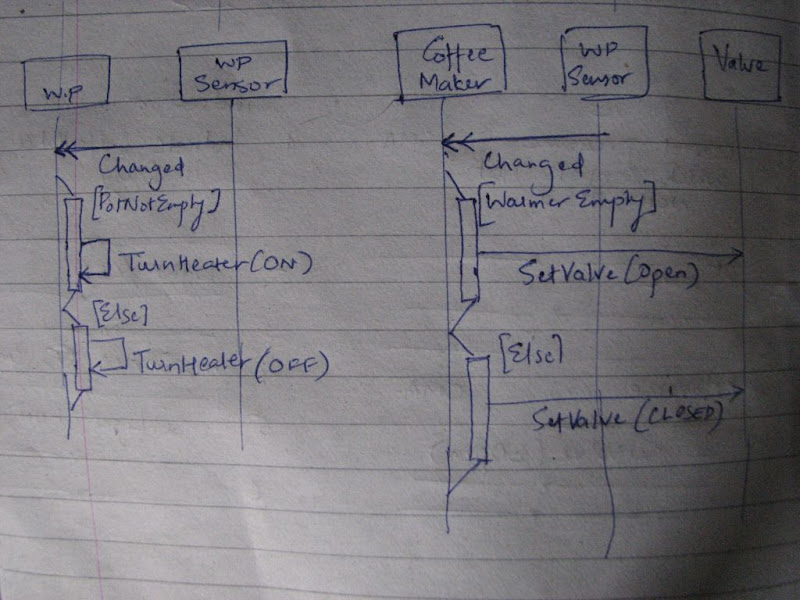 W.P
WP
Sensor
Coffee
Maker
WP
Sensor
Valve
Changed
[PotNotEmpty]
TurnHeater(ON)
[Else]
TurnHeater(OFF)
Changed
[Warmer Empty]
SetValve(Open)
[Else]
SetValve(CLOSED)